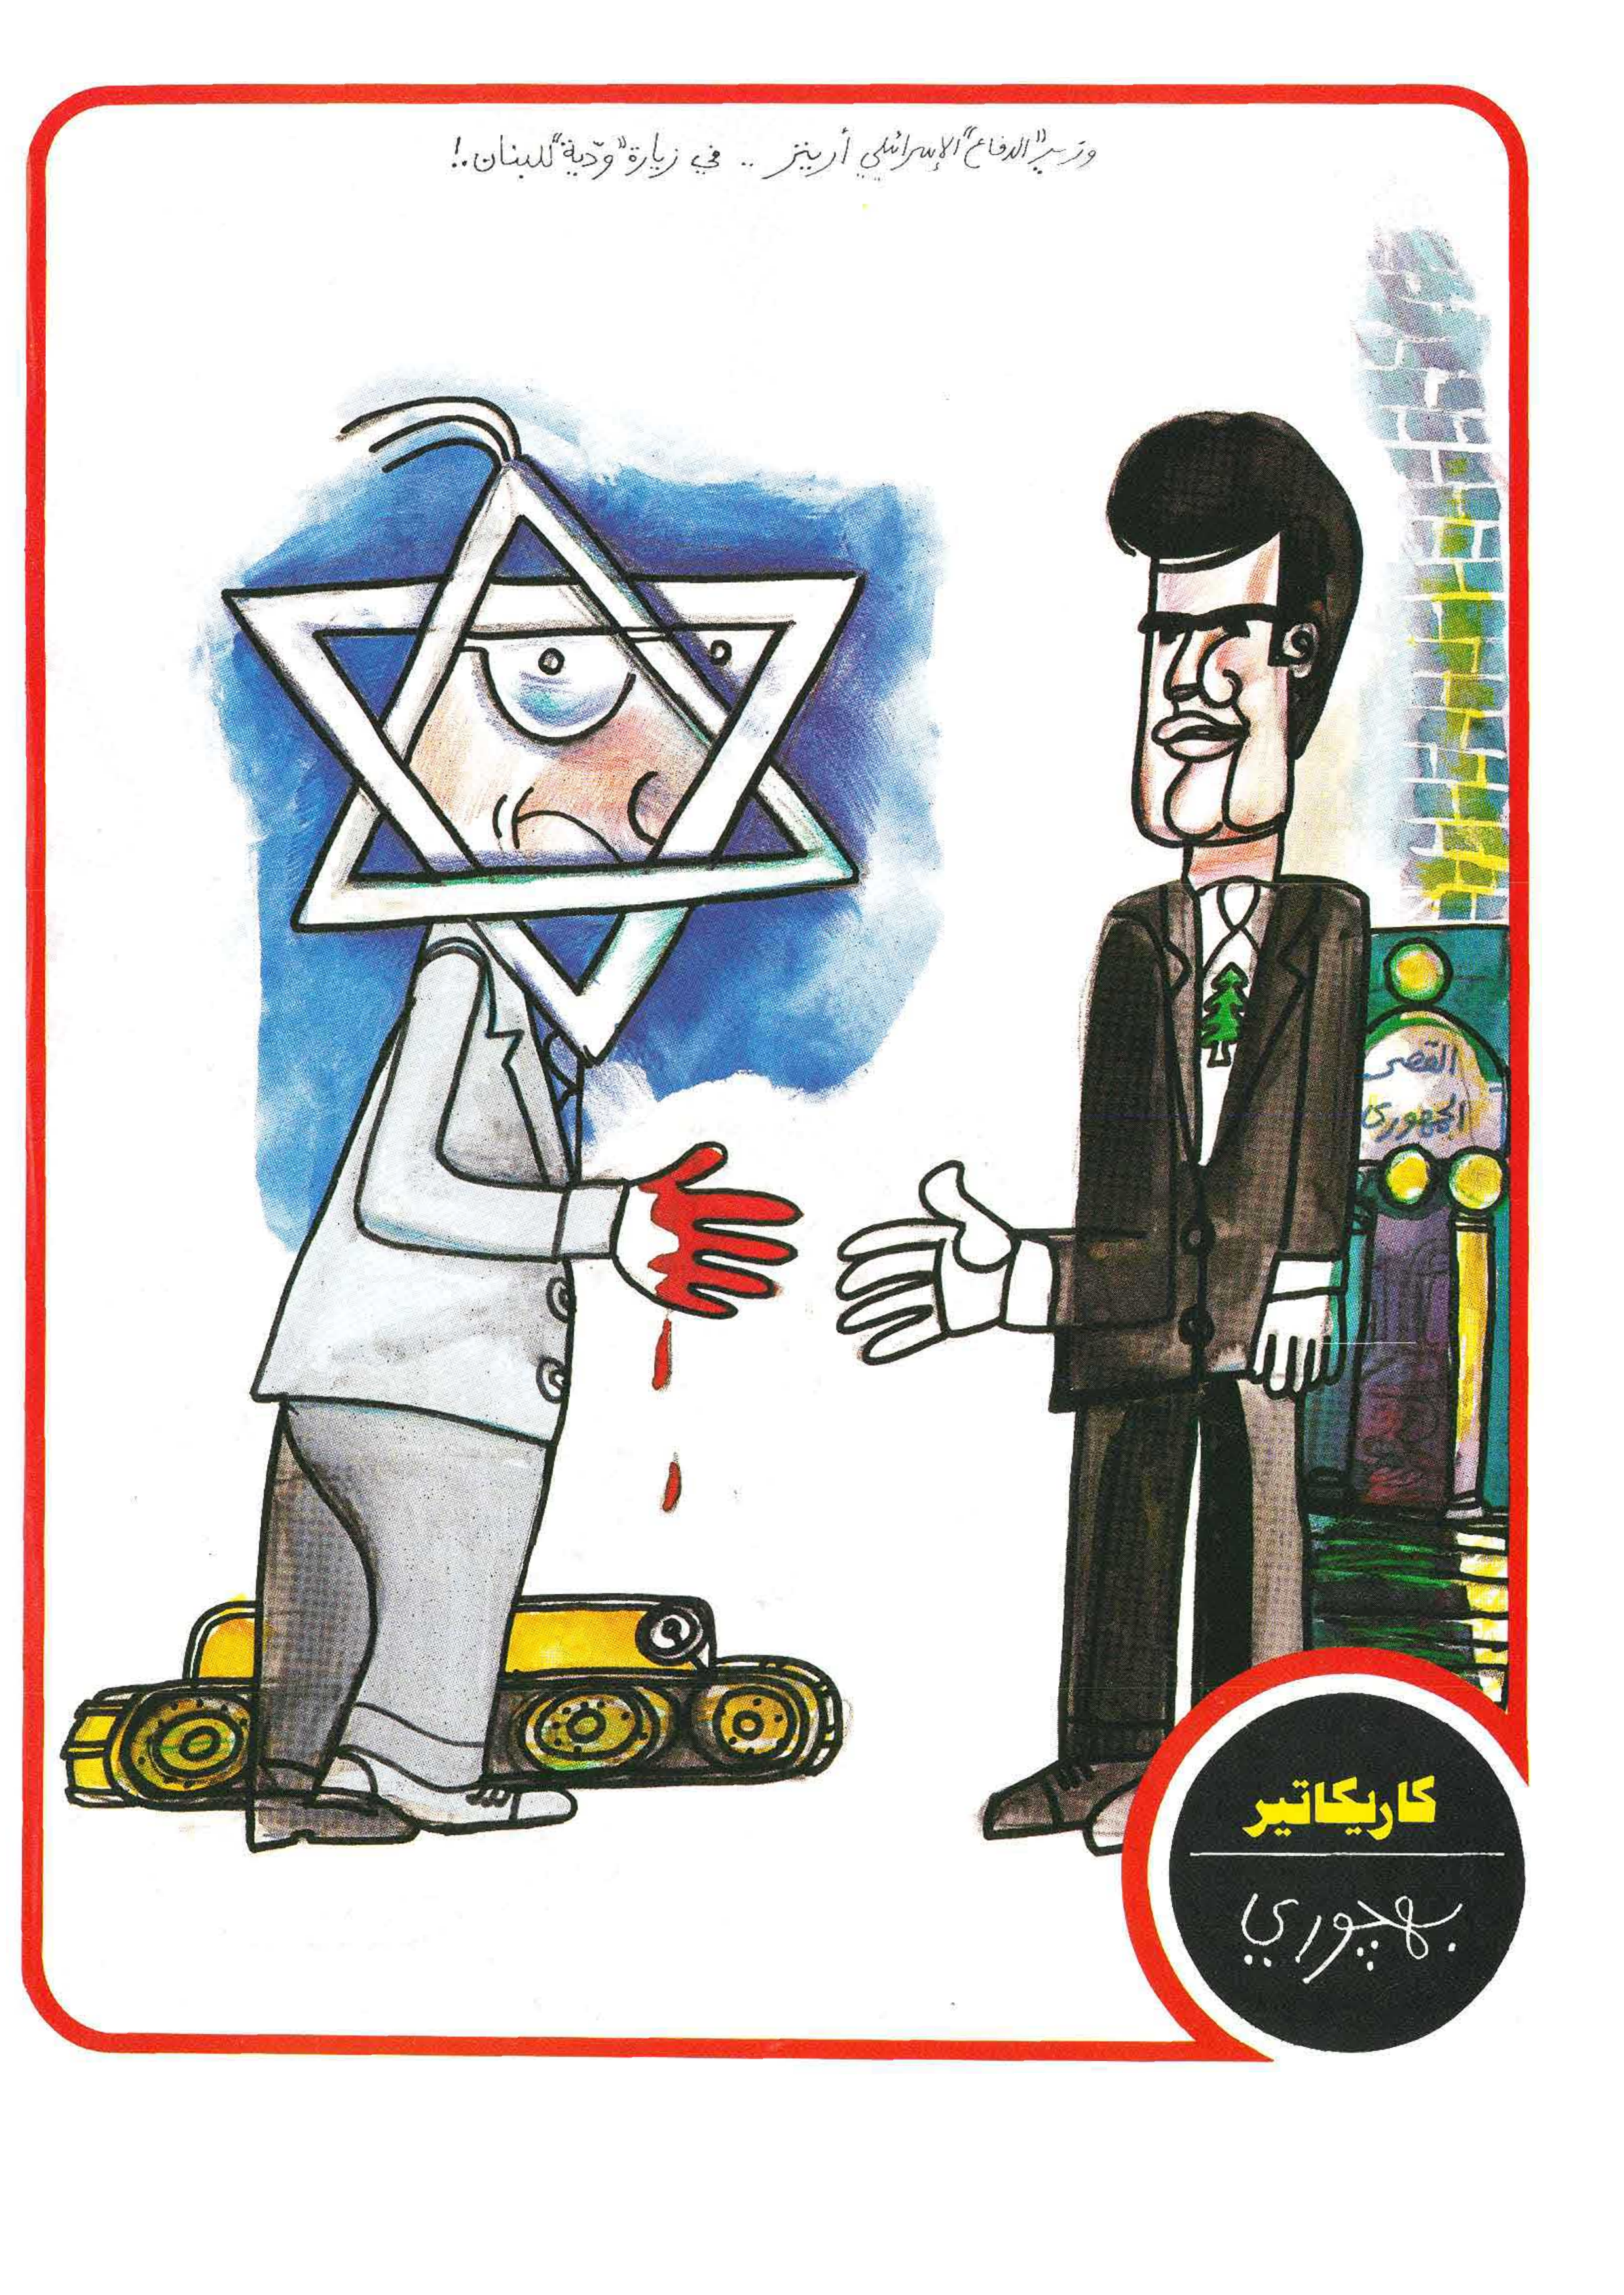 وزير "الدفاع" الإسرائيلي أرينز .. في زيارة "ودّية" للبنان..!
القصر
الجمهوري
كاريكاتير
بهجوري